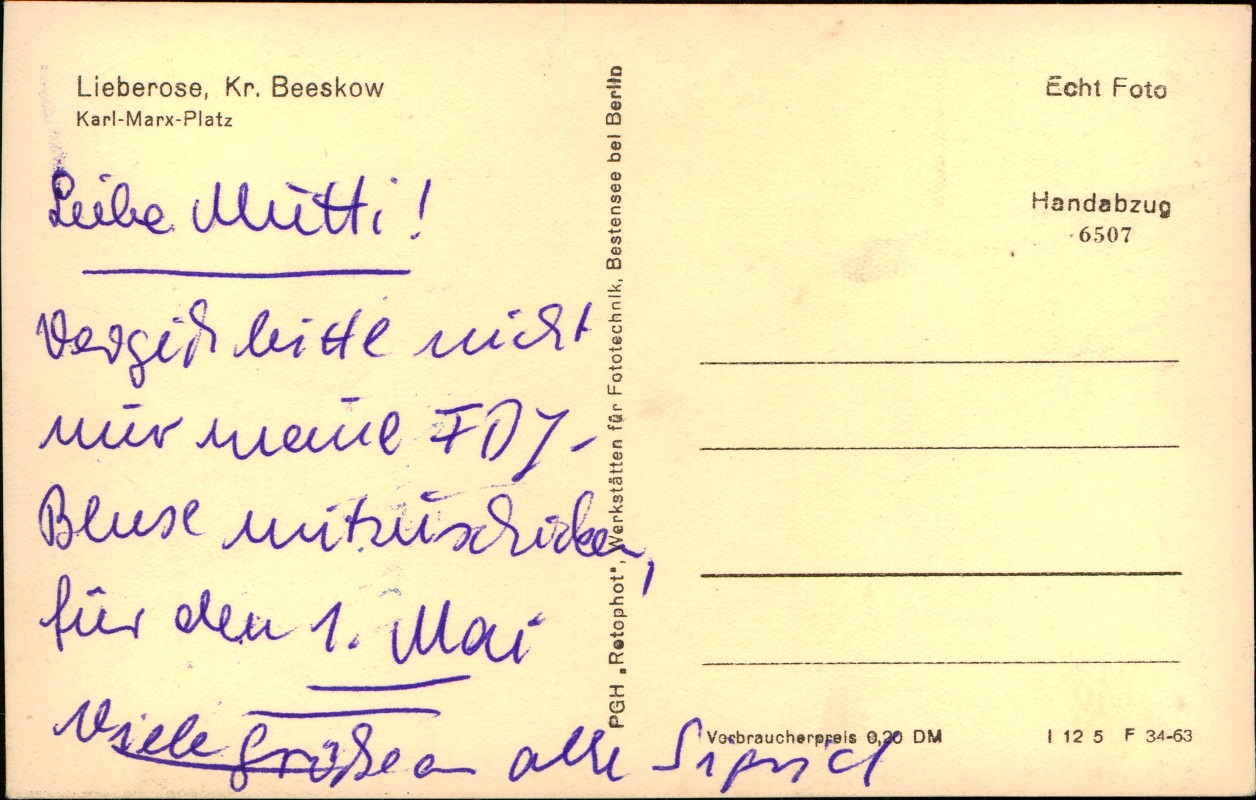 Lieberose, Kr. Beeskow
Karl-Marx-Platz
Liebe Mutti!
Vergiß bitte nicht
mir meine FDJ-
Bluse mitzuschicken,
für den 1. Mai
Viele Grüße an alle Sigrid
PGH „Rotophot“, Werkstätten für Fototechnik, Bestensee bei Berlin
Echt Foto
Handabzug
6507
Verbraucherpreis 0,20 DM
I 12 5 F 34-63